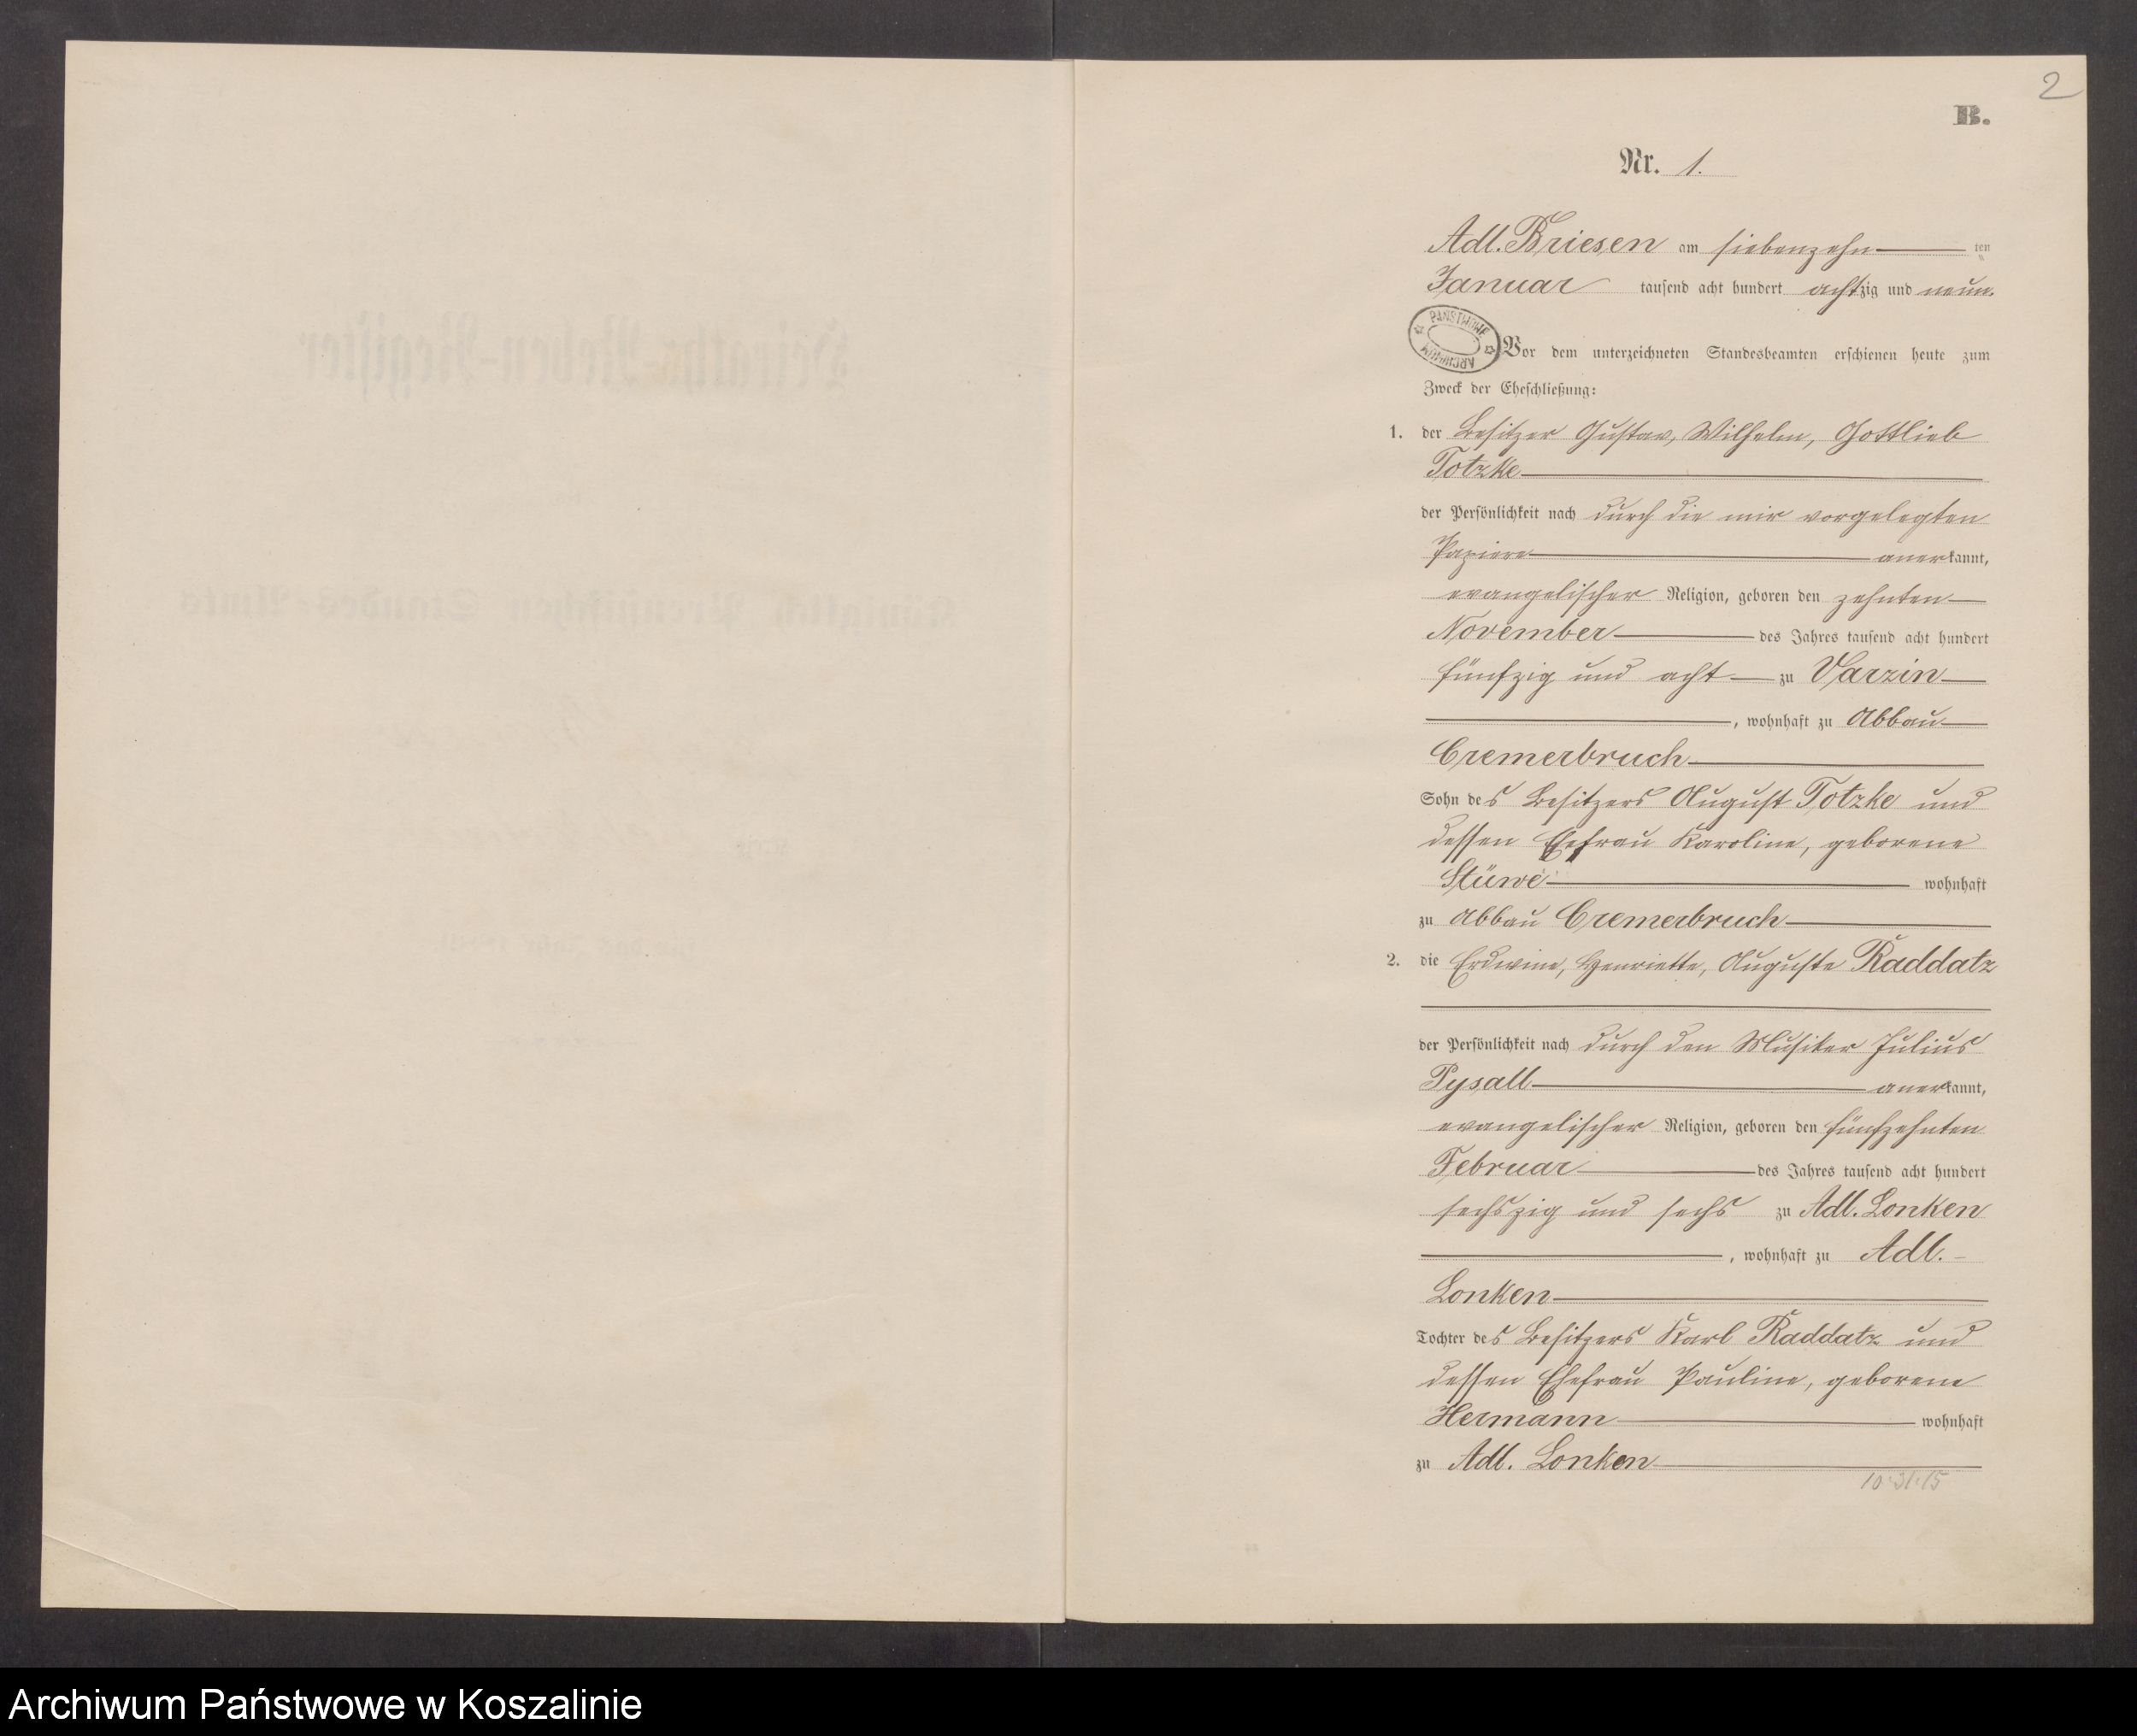 2
B.
Nr. 1.
Adl. Briesen am siebenzehn ten
Januar tausend acht hundert achtzig und neun.
PAŃSTWOWE
ARCHIWUM
Vor dem unterzeichneten Standesbeamten erschienen heute zum
Zweck der Eheschließung:
1. der Besitzer Gustav, Wilhelm, Gottlieb
Totzke
der Persönlichkeit nach durch die mir vorgelegten
Papiere anerkannt,
evangelischer Religion, geboren den zehnten
November des Jahres tausend acht hundert
fünfzig und acht zu Varzin
, wohnhaft zu Abbau
Cremerbruch
Sohn des Besitzers August Totzke und
dessen Ehefrau Karoline, geborene
Stüwe wohnhaft
zu Abbau Cremerbruch
2. die Erdwine, Henriette, Auguste Raddatz
der Persönlichkeit nach durch den Musiker Julius
Pysall anerkannt,
evangelischer Religion, geboren den fünfzehnten
Februar des Jahres tausend acht hundert
sechszig und sechs zu Adl. Lonken
, wohnhaft zu Adl.
Lonken
Tochter des Besitzers Karl Raddatz und
dessen Ehefrau Pauline, geborene
Hermann wohnhaft
zu Adl. Lonken
10.31.15
Archiwum Państwowe w Koszalinie